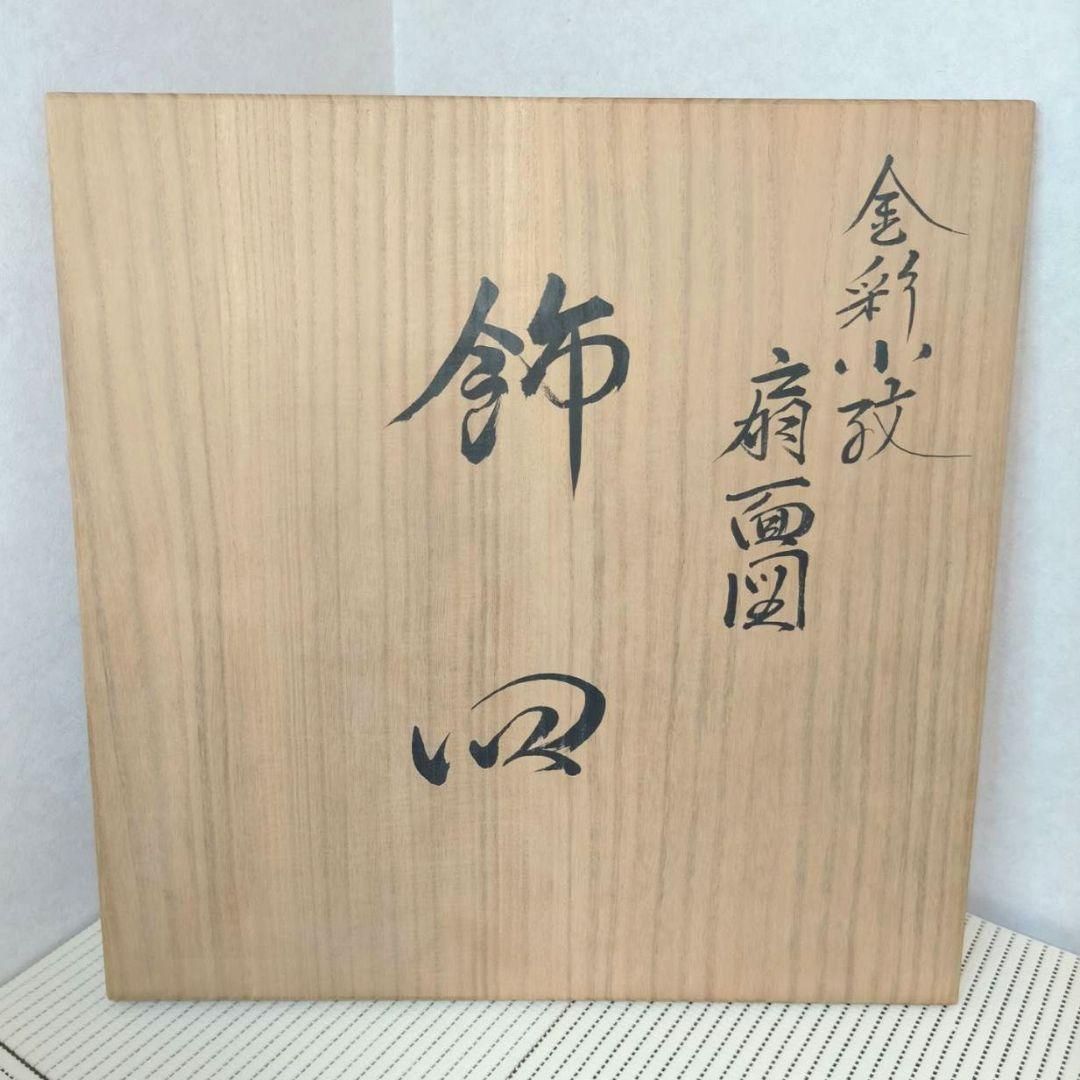 金彩小紋
扇面図
飾皿